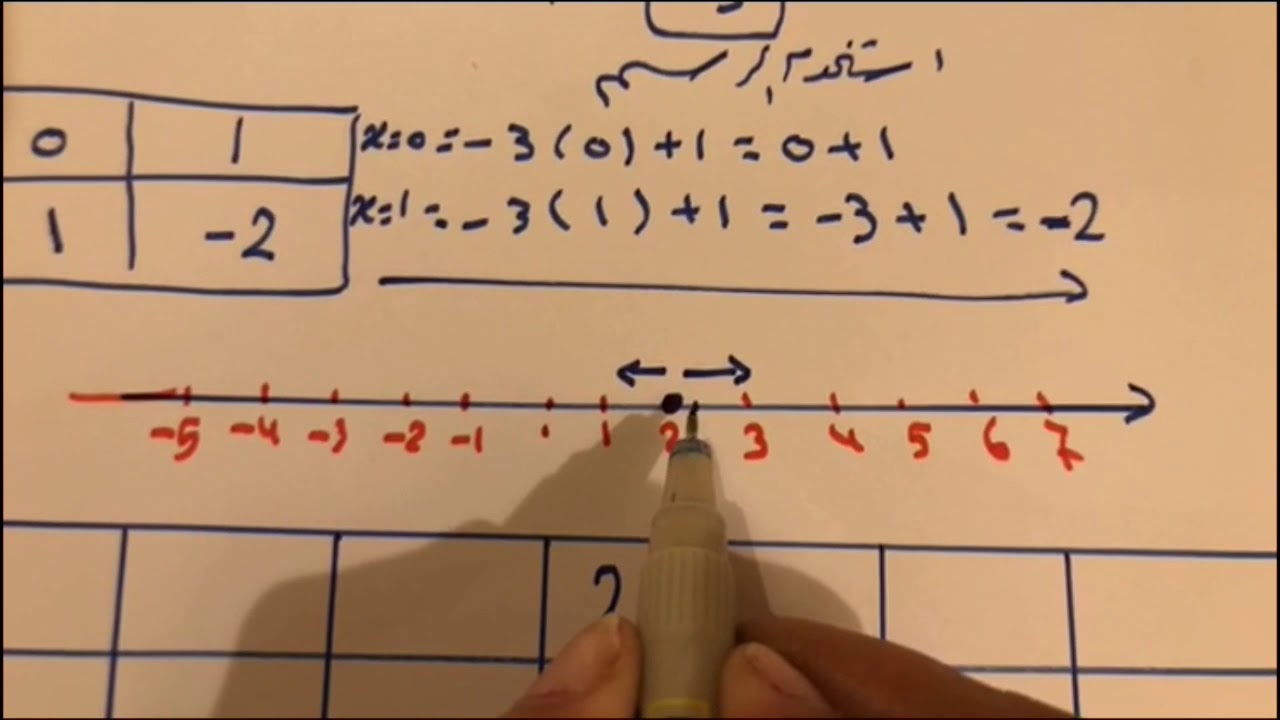 استخدم الرسم
0 1 x=0 = -3(0)+1 = 0+1
1 -2 x=1 = -3(1)+1 = -3+1 = -2
-5 -4 -3 -2 -1 . 1 2 3 4 5 6 7
2